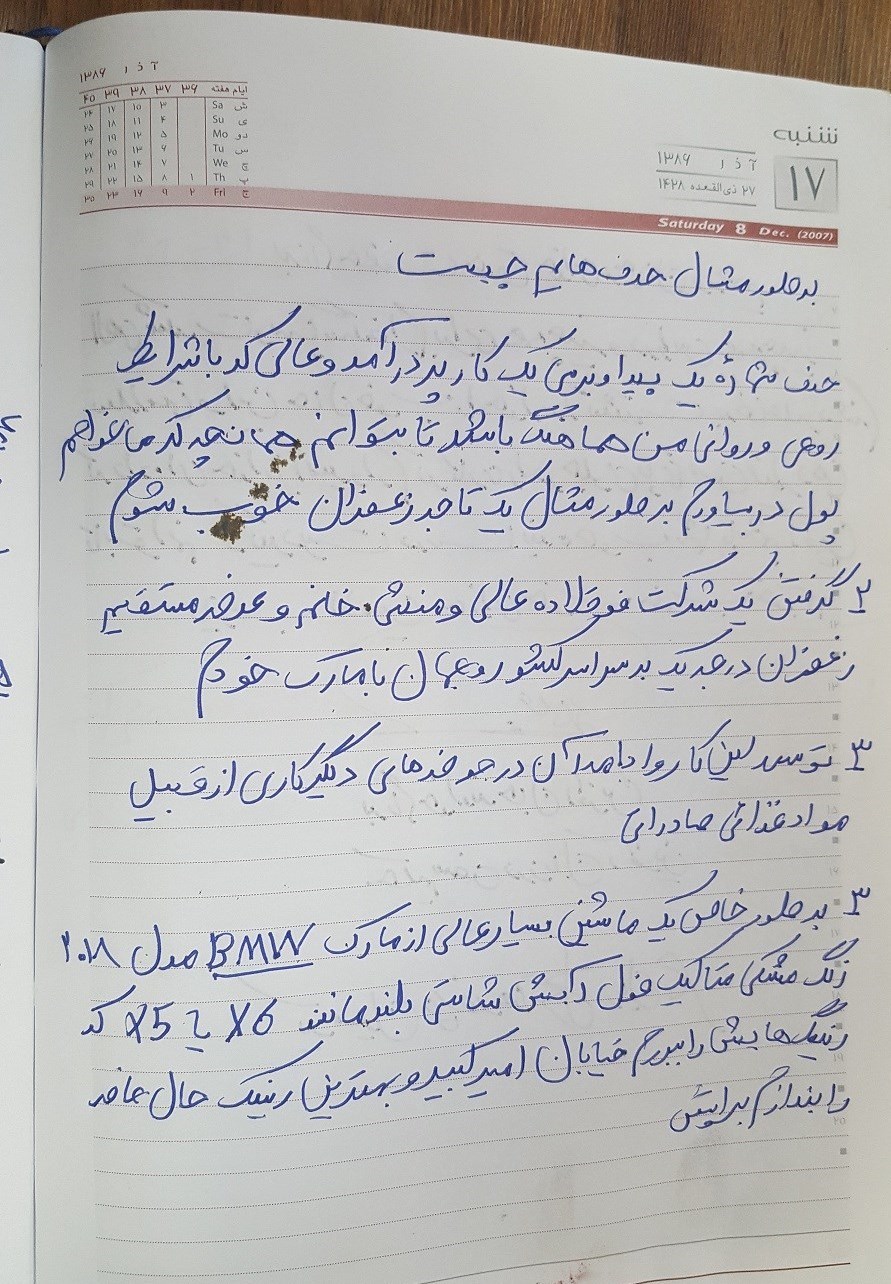 آذر ۱۳۸۶
ایام هفته ۳۶ ۳۷ ۳۸ ۳۹ ۴۰
ش Sa ۳ ۱۰ ۱۷ ۲۴
ی Su ۴ ۱۱ ۱۸ ۲۵
دو Mo ۵ ۱۲ ۱۹ ۲۶
س Tu ۶ ۱۳ ۲۰ ۲۷
چ We ۷ ۱۴ ۲۱ ۲۸
پ Th ۱ ۸ ۱۵ ۲۲ ۲۹
ج Fri ۲ ۹ ۱۶ ۲۳ ۳۰
شنبه
۱۷
آذر ۱۳۸۶
۲۷ ذی‌القعده ۱۴۲۸
Saturday 8 Dec. (2007)
به طور مثال حدف هایم چیست
حدف شماره یک پیدا و بردی یک کار پر درآمد و عالی که با شرایط
روحی و روانی من هماهنگ باشد تا بتوانم همانچه که ماخواهم
پول در بیاورم به طور مثال یک تاجر زعفران خوب بشوم
۲ گرفتن یک شرکت فوق‌لاده عالی و منشی خانم و عرضه مستقیم
زعفران درجه یک به سراسر کشور و جهان با مارک خودم
۳ توسعه این کار و ادامه آن در حوضه‌های دیگر کاری از قبیل
مواد غذائی صادراتی
۳ به طور خاص یک ماشین بسیار عالی از مارک BMW مدل ۲۰۱۸
رنگ مشکی متالیک فول آپشن شاسی بلند مانند X6 یا X5 که
رینگ‌هایش را ببرم خیابان امیرکبیر و بهترین رینگ حال حاضر
را بندازم برایش